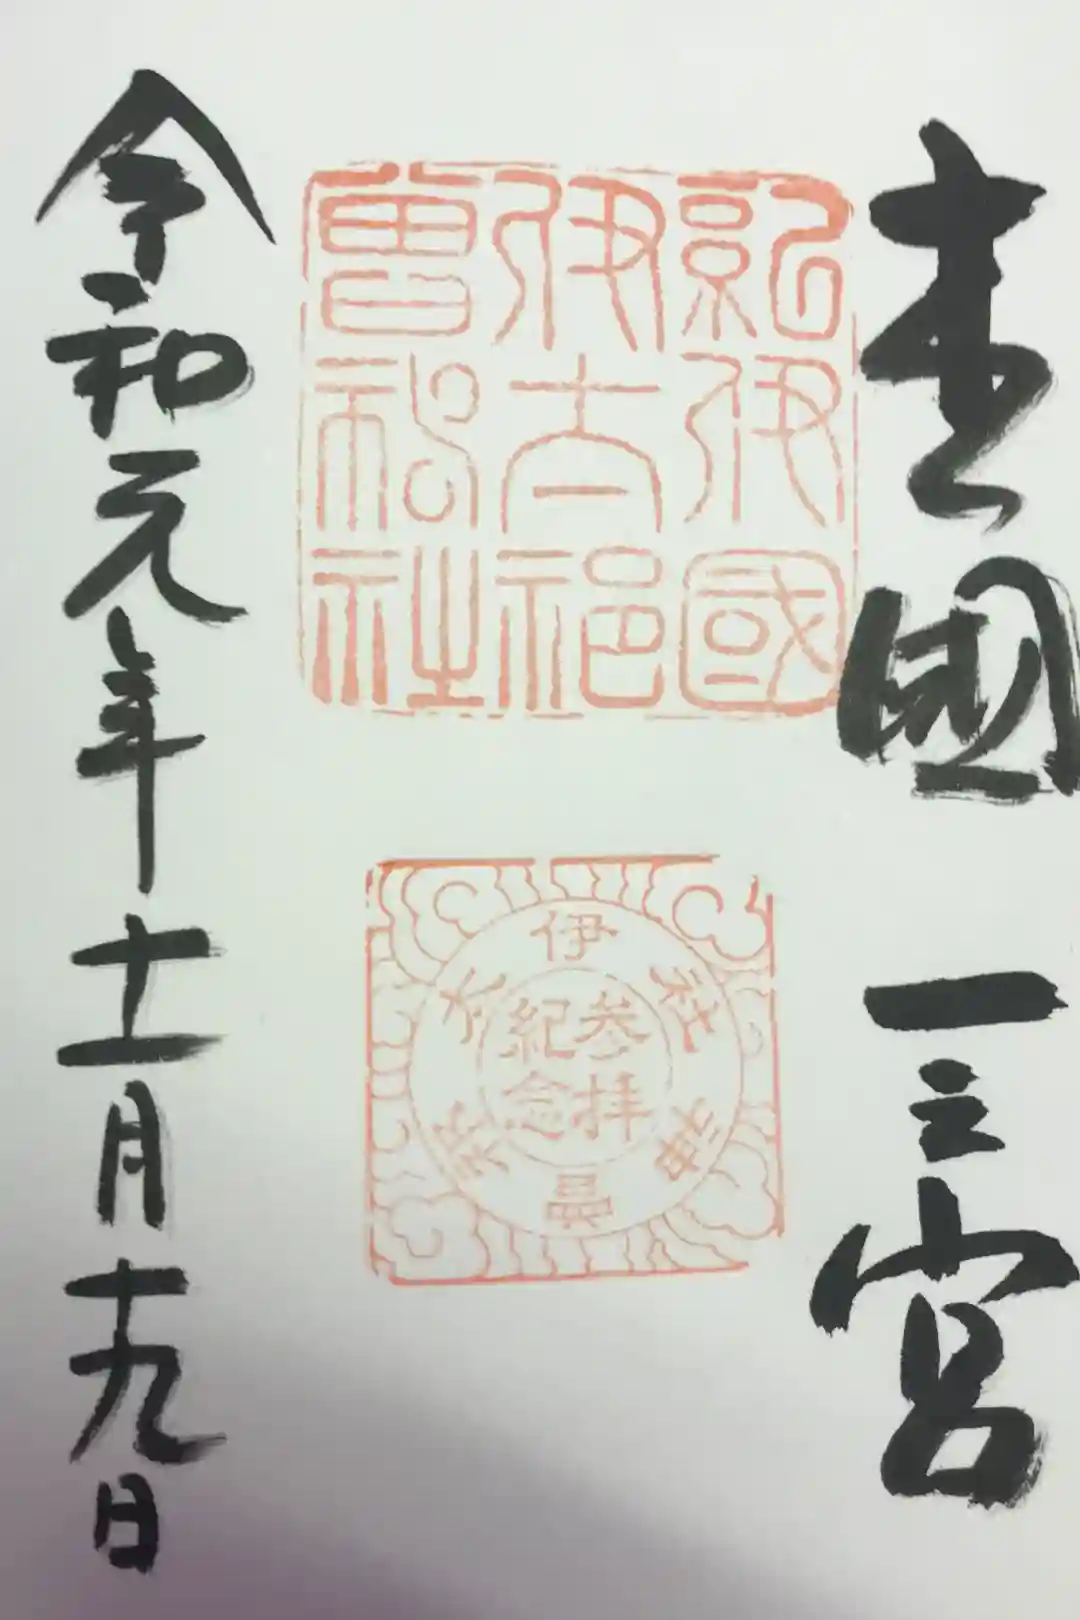 木之國 一之宮
紀伊國
伊太祁
曽神社
伊太祁曽神社
参拝
紀念
令和元年十一月十九日